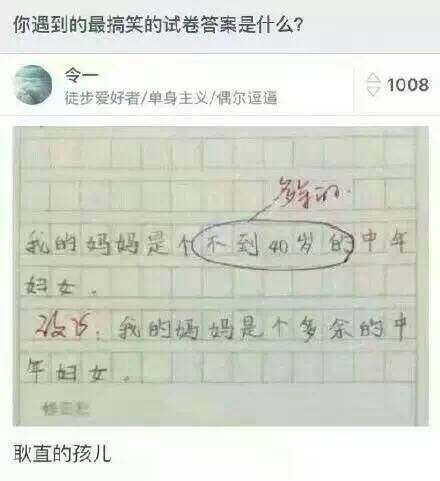 你遇到的最搞笑的试卷答案是什么?
令一
徒步爱好者/单身主义/偶尔逗逼
1008
多余的.
我的妈妈是个不到40岁的中年
妇女.
改为:我的妈妈是个多余的中
年妇女.
耿直的孩儿